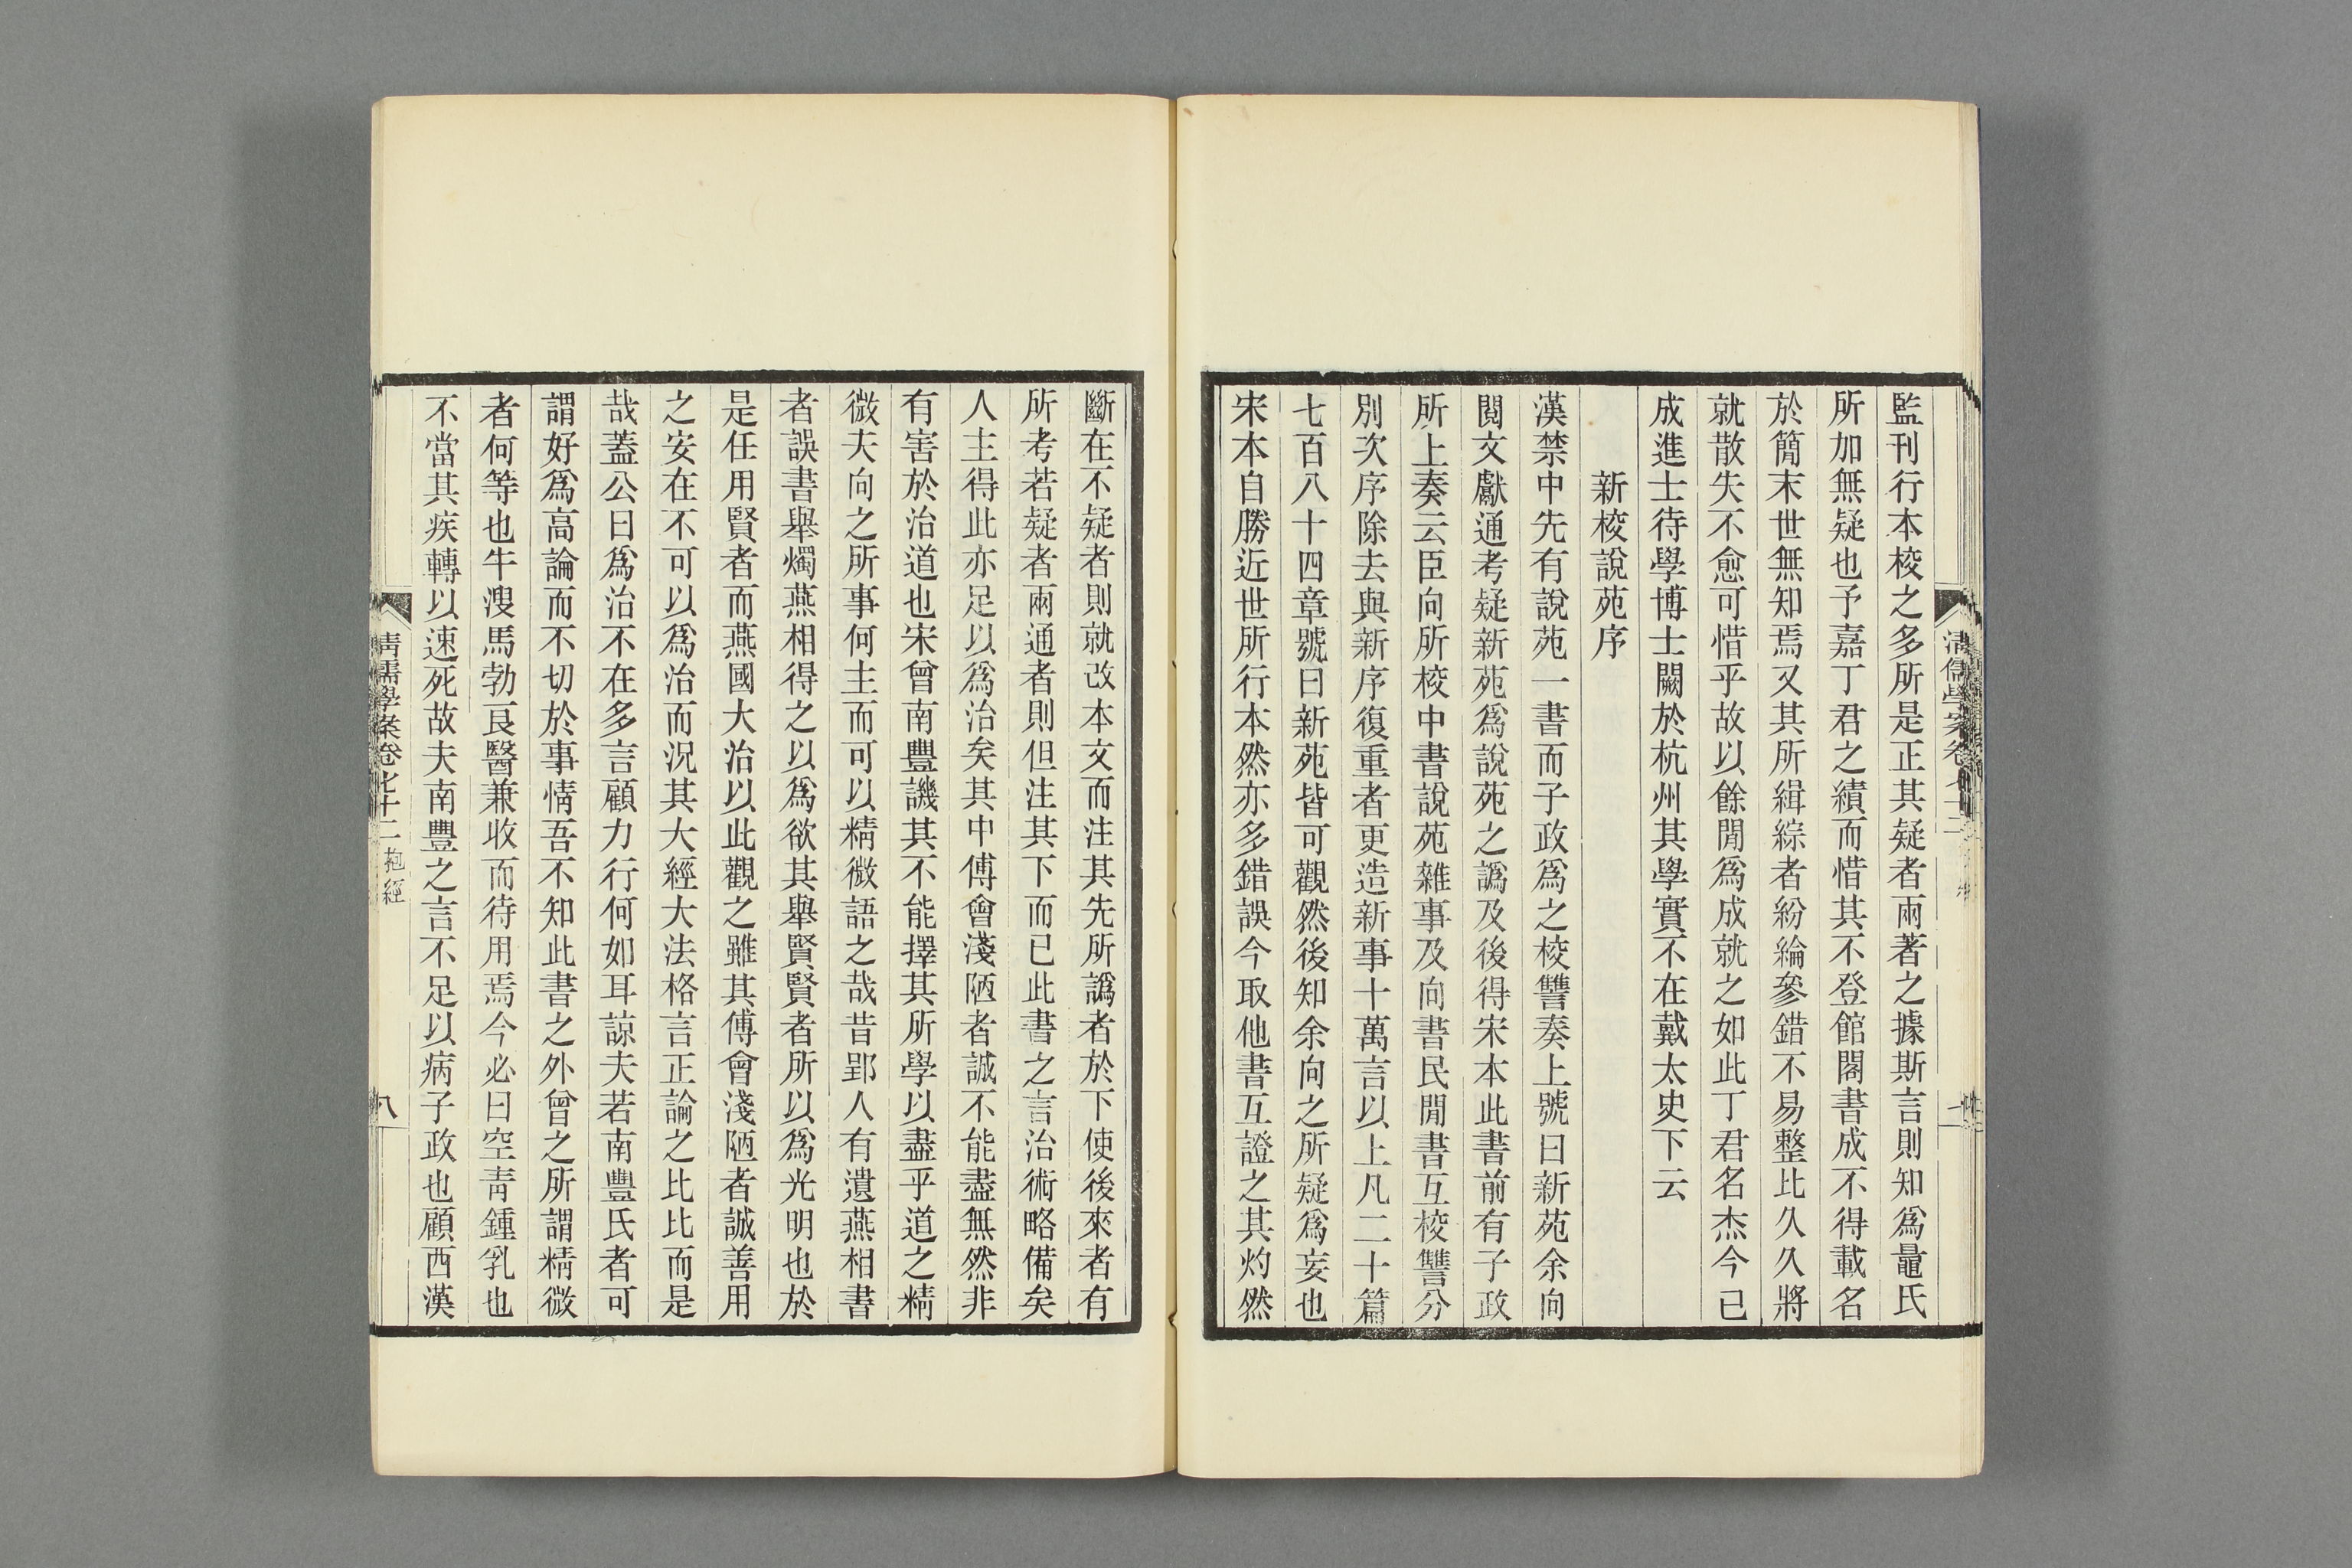 監刊行本校之多所是正其疑者兩著之據斯言則知爲鼂氏
所加無疑也予嘉丁君之績而惜其不登館閣書成不得載名
於簡末世無知焉又其所緝綜者紛綸參錯不易整比久久將
就散失不愈可惜乎故以餘閒爲成就之如此丁君名杰今已
成進士待學博士闕於杭州其學實不在戴太史下云
新校說苑序
漢禁中先有說苑一書而子政爲之校讐奏上號曰新苑余向
閱文獻通考疑新苑爲說苑之譌及後得宋本此書前有子政
所上奏云臣向所校中書說苑雜事及向書民閒書互校讐分
別次序除去與新序復重者更造新事十萬言以上凡二十篇
七百八十四章號曰新苑皆可觀然後知余向之所疑爲妄也
宋本自勝近世所行本然亦多錯誤今取他書互證之其灼然
斷在不疑者則就改本文而注其先所譌者於下使後來者有
所考若疑者兩通者則但注其下而已此書之言治術略備矣
人主得此亦足以爲治矣其中傅會淺陋者誠不能盡無然非
有害於治道也宋曾南豐譏其不能擇其所學以盡乎道之精
微夫向之所事何主而可以精微語之哉昔郢人有遺燕相書
者誤書舉燭燕相得之以爲欲其舉賢賢者所以爲光明也於
是任用賢者而燕國大治以此觀之雖其傅會淺陋者誠善用
之安在不可以爲治而況其大經大法格言正論之比比而是
哉蓋公曰爲治不在多言顧力行何如耳諒夫若南豐氏者可
謂好爲高論而不切於事情吾不知此書之外曾之所謂精微
者何等也牛溲馬勃良醫兼收而待用焉今必曰空青鍾乳也
不當其疾轉以速死故夫南豐之言不足以病子政也顧西漢
清儒學案卷七十二 抱經
八